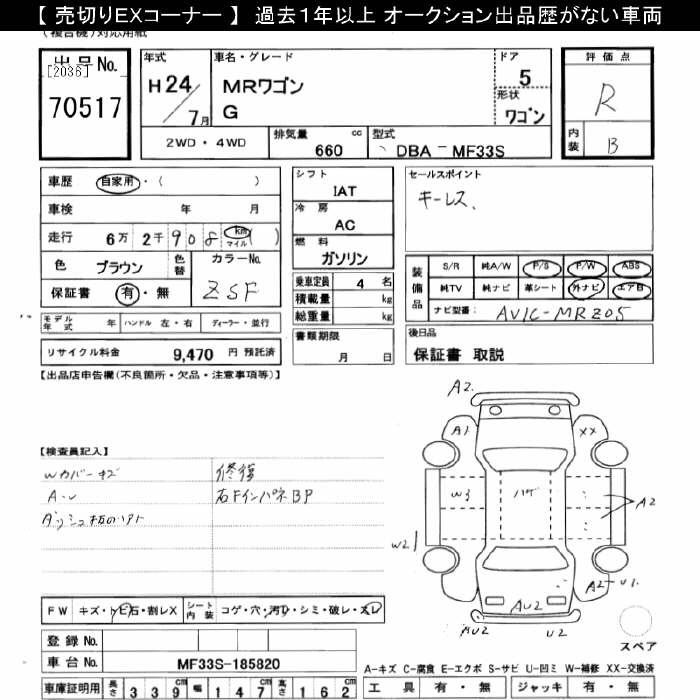 【 売切りEXコーナー 】 過去1年以上 オークション出品歴がない車両
(複合機)対応用紙
出品No.
[2036]
70517
年式
H24/7月
車名・グレード
MRワゴン
G
ドア
5
形状
ワゴン
評価点
R
内装
B
2WD・4WD
排気量 cc
660
型式
DBA-MF33S
車歴 自家用・( )
車検 年 月
走行 6万 2千908 km マイル ( )
色 ブラウン 色替 カラーNo.
ZSF
保証書 有・無
モデル年式 年 ハンドル 左・右 ディーラー・並行
リサイクル料金 9,470 円 預託済
シフト
IAT
冷房
AC
燃料
ガソリン
乗車定員 4 名
積載量 kg
総重量 kg
書類期限
月 日
セールスポイント
キーレス、
装備品
S/R 純A/W P/S P/W ABS
純TV 純ナビ 革シート 外ナビ エアB
ナビ型番: AVIC-MRZ05
後日品
保証書 取説
【出品店申告欄(不良箇所・欠品・注意事項等)】
【検査員記入】
Wカバーキズ
A・U
ダッシュ板のリアト
修復
右FインパネBP
A2
A1
XX
W3
ハゲ
A2
W2
A2 U1
AU2
AU2
U2
スペア
FW キズ・トビ石・割レX シート内装 コゲ・穴・汚レ・シミ・破レ・スレ
登録No.
車台No. MF33S-185820
車庫証明用 長さ 339cm 幅 147cm 高さ 162cm
A-キズ C-腐食 E-エクボ S-サビ U-凹ミ W-補修 XX-交換済
工具 有・無 ジャッキ 有・無